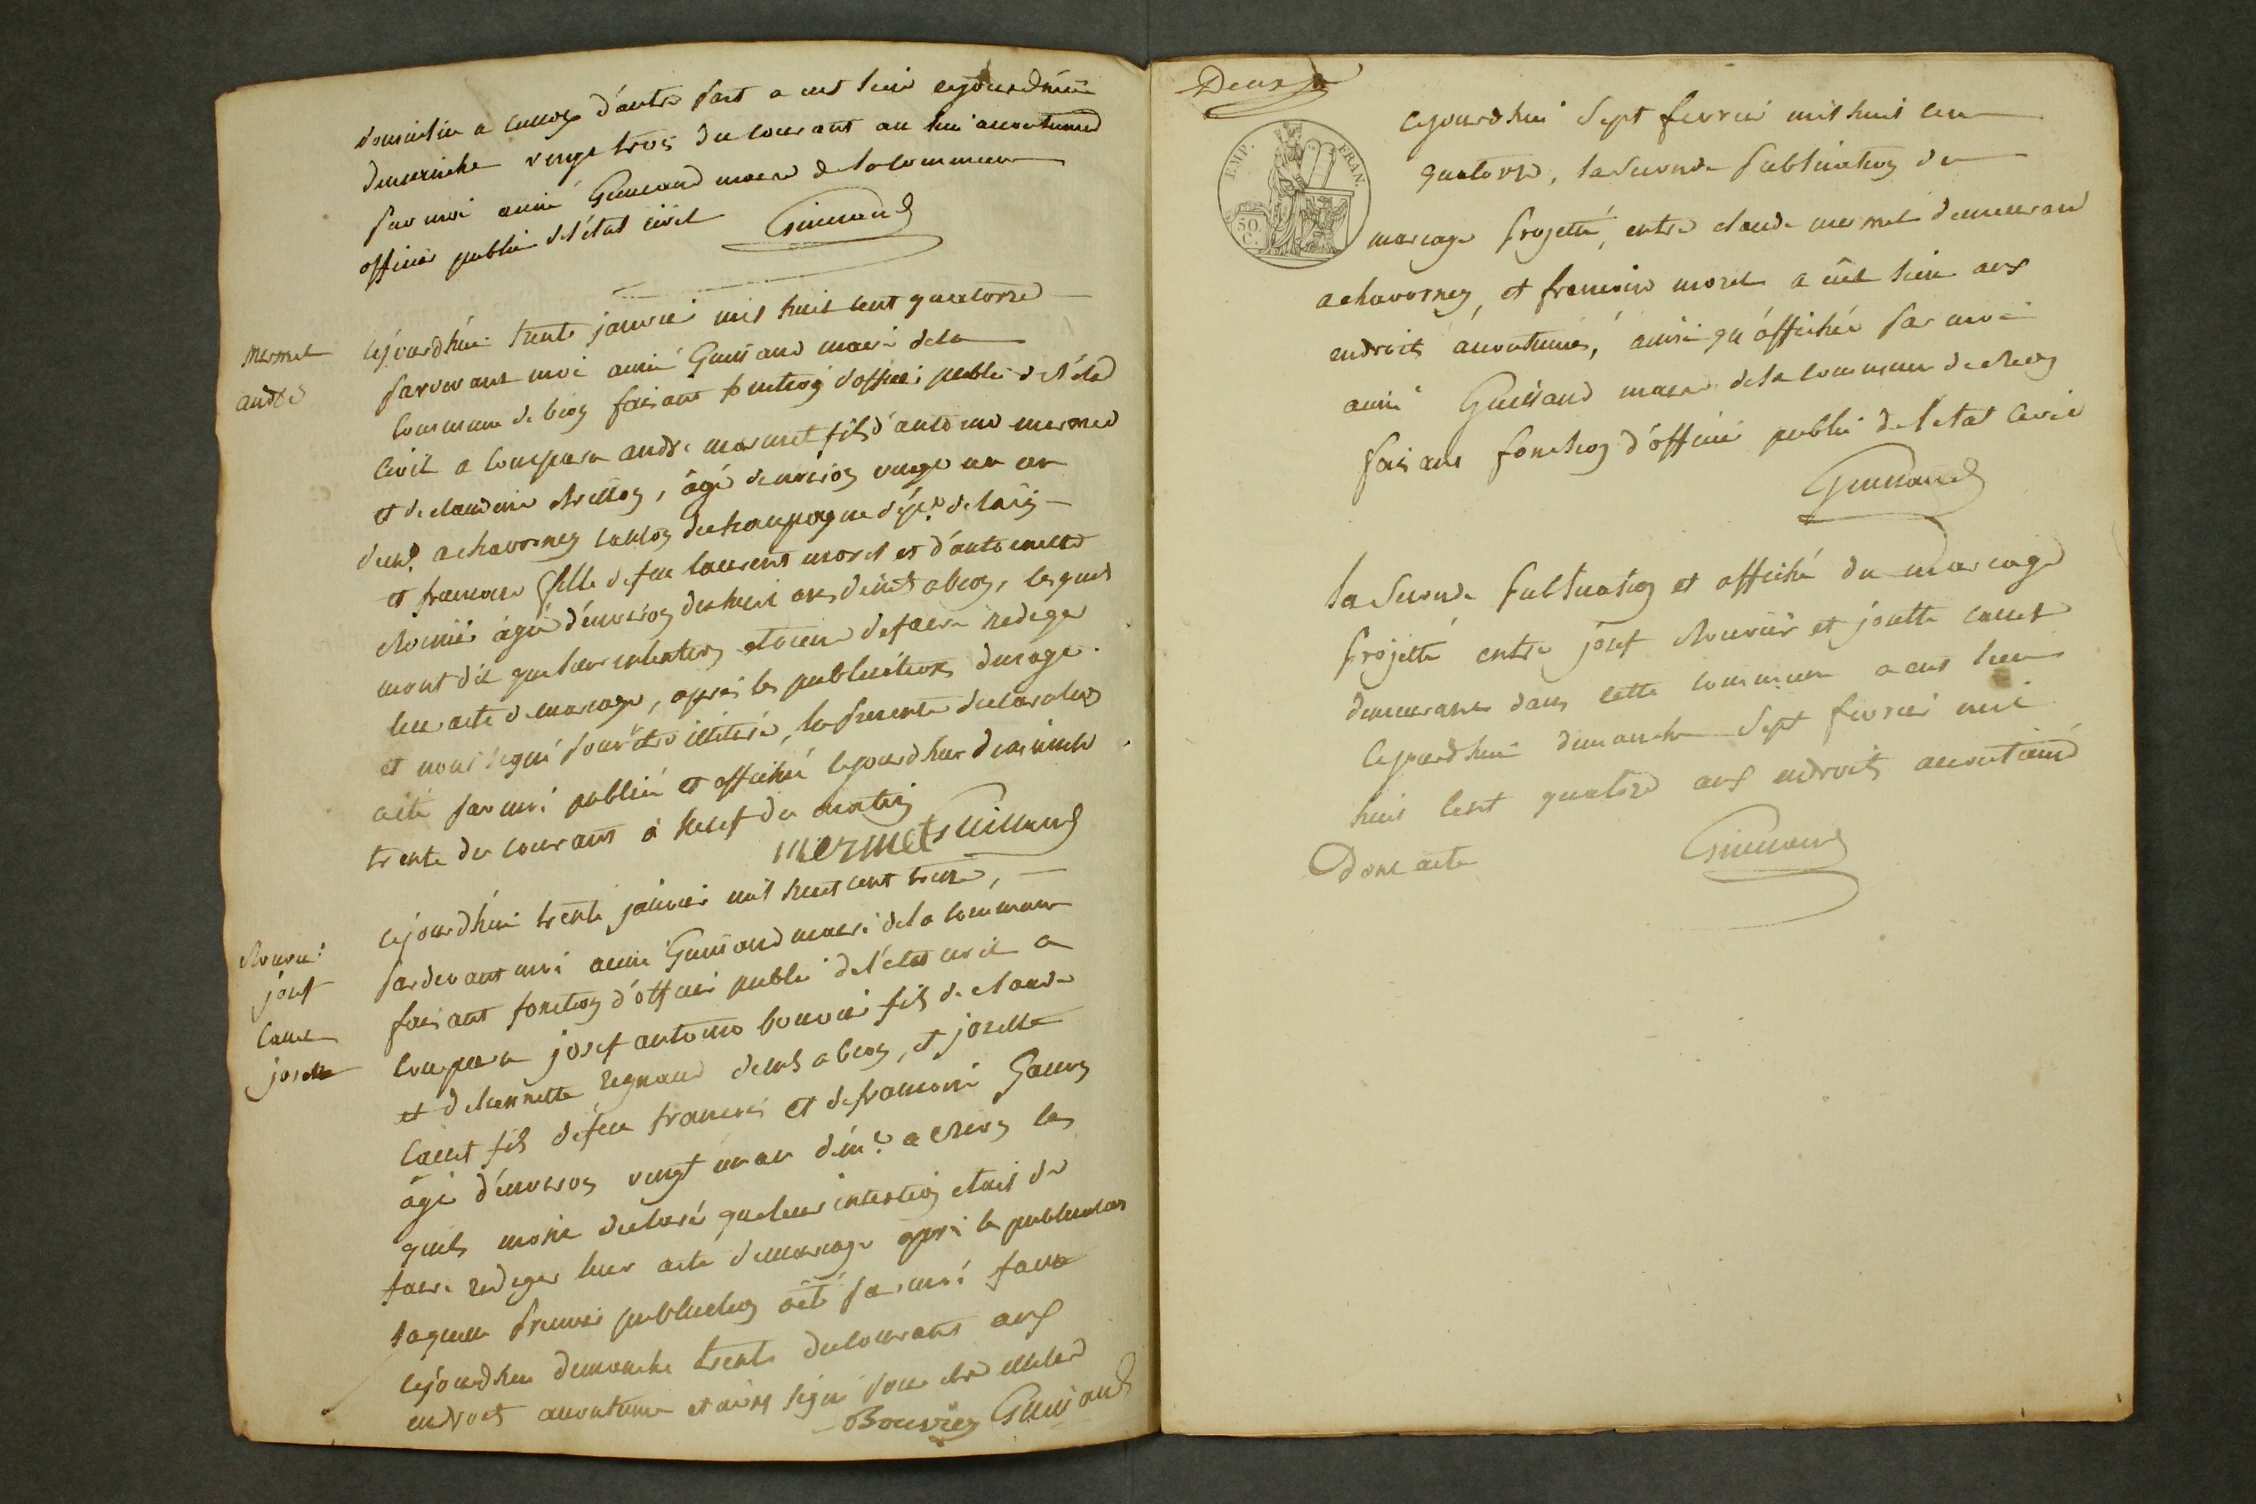 domicilié a d'autre part a eut lieu cejourdhui
dimanche vingt trois du courant au lieu accoutumé
par moi aimé Guinand maire de la commune
officier public de l'état civil Guinand
mermet
andré
cejourdhui trente janvier mil huit cent quatorze
pardevant moi aimé Guinand maire de la
commune de faisant fonction d'officier public de l'état
civil a comparu andré mermet fils d'antoine mermet
et de claudine, âgé denviron vingt un an
demt. a chavornay canton de champagne dépt. de l'ain
et françoise fille de feu laurent morel et d'antoinette
âgée d'environ dixhuit ans demt, lesquels
mont dit que leur intention etoient de faire rediger
leur acte de mariage, après les publications d'usage
et non signé pour être illitéré, la presente declaration
a été par moi publié et affiché cejourdhui dimanche
trente du courant à heuf du matin
mermet Guinand
josef
josette
cejourdhui trente janvier mil huit cent treize,
pardevant moi aimé Guinand maire de la commune
faisant fonction d'officier public de l'état civil a
comparu josef antoine bouvier fils de claude
et de Regnaud demt, et josette
fils de feu francois et de francoise
âgé d'environ vingt un an demt. a les
quels mont declaré que leur intention etait de
faire rediger leur acte de mariage après la publication
laquelle premier publication a été par moi faite
cejourdhui dimanche trente du courant aux
endroits accoutumé et signé pour être illitéré
Bouvier Guinand
Deux
EMP. FRAN.
50
C.
cejourdhui sept fevrier mil huit cent
quatorze, la seconde publication du
mariage projetté, entre claude mermet demeurant
a chavornay, et francoise morel a eut lieu aux
endroits accoutumés, ainsi qu'affichée par moi
aimé Guinand maire de la commune de
faisant fonction d'officier public de l'etat civil
Guinand
la seconde publication et affiche du mariage
projetté entre josef et josette
demeurant dans cette commune a eut lieu
cejourdhui dimanche sept fevrier mil
huit cent quatorze aux endroits accoutumé
Dont acte Guinand